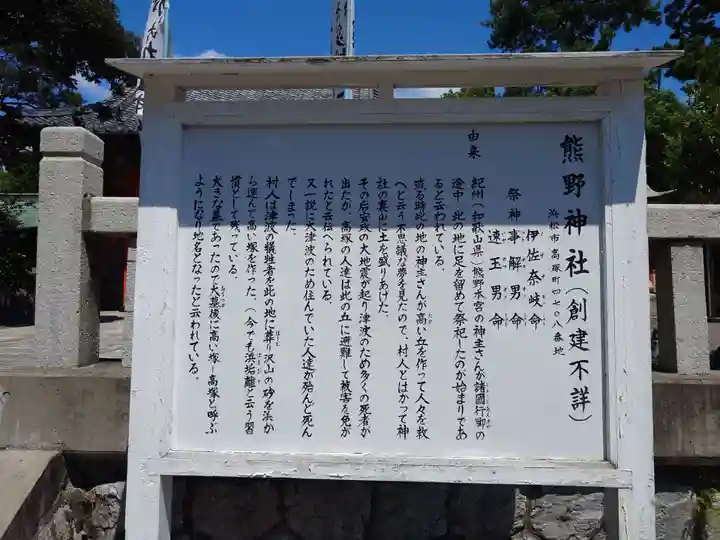 熊野神社（創建不詳）
浜松市高塚町四七〇八番地
祭神
伊佐奈岐命
事解男命
速玉男命
由来
紀州（和歌山県）熊野本宮の神主さんが諸國行脚の
途中、此の地に足を留めて祭祀したのが始まりであ
ると云われている。
或る時此の地の神主さんが高い丘を作って人々を救
へと云う不思議な夢を見たので、村人とはかって神
社の裏山に土を盛りあげた。
その后宝永の大地震が起り津波のため多くの死者が
出たが、高塚の人達は此の丘に避難して被害を免が
れたと云伝へられている。
又一説に大津波のため住んでいた人達が殆んど死ん
でしまった。
村人は津波の犠牲者を此の地に葬り沢山の砂を浜か
ら運んで高い塚を作った。（今でも浜垢離と云う習
慣として残っている。
大きな墓であったので大墓後に高い塚－高塚と呼ぶ
ようになり地名となったと云われている。